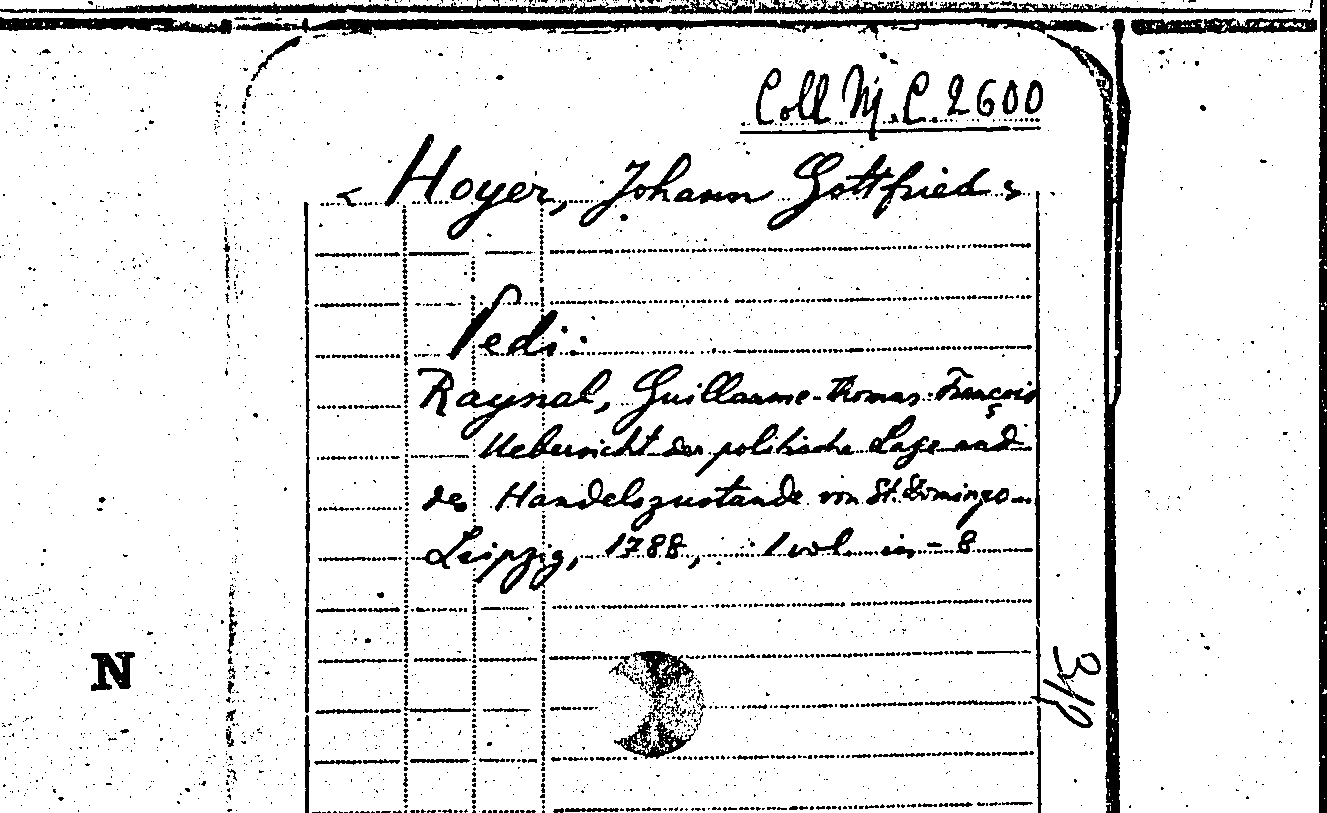 Coll M.C. 2600
< Hoyer, Johann Gottfried >
Vedi:
Raynal, Guillaume-Thomas-François
Uebersicht der politische Lage und
des Handelszustande von St. Domingo
Leipzig, 1788, 1 vol. in-8
N